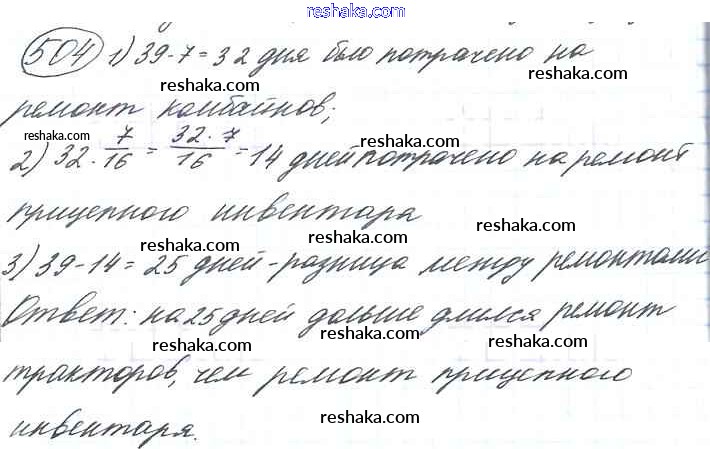 reshaka.com
504 1) 39-7=32 дня было потрачено на
reshaka.com reshaka.com
ремонт комбайнов;
reshaka.com reshaka.com reshaka.com
2) 32 · 7/16 = 32 · 7/16 = 14 дней потрачено на ремонт
reshaka.com reshaka.com
прицепного инвентара
reshaka.com reshaka.com
3) 39-14=25 дней-разница между ремонтами
reshaka.com
Ответ: на 25 дней дольше длился ремонт
reshaka.com reshaka.com
тракторов, чем ремонт прицепного
reshaka.com reshaka.com
инвентаря.